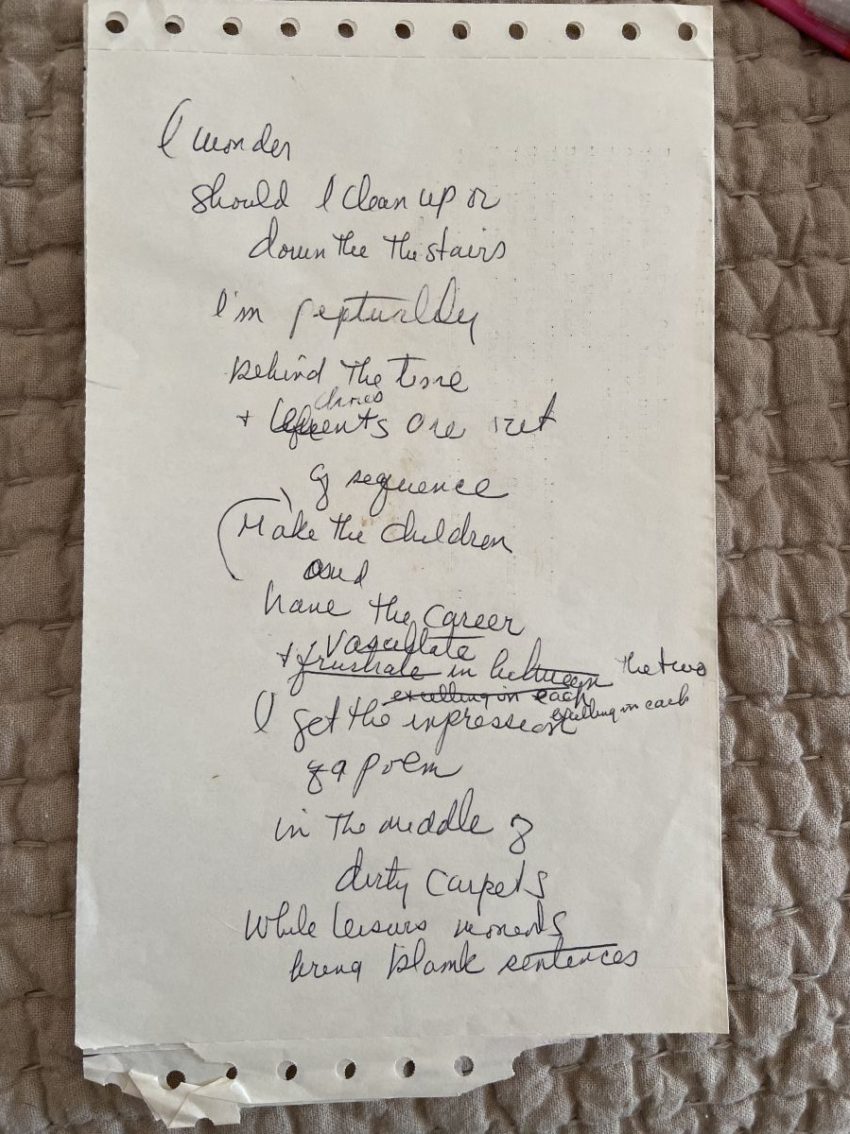 I wonder
should I clean up or
down the the stairs
I'm peptually
behind the time
+ events are out
of sequence
Make the children
and
have the career
vasullate
+ frustrate in between the two
exulling in each exulling in each
I get the impression
of a poem
in the middle of
dirty carpets
while leisure moments
bring blank sentences